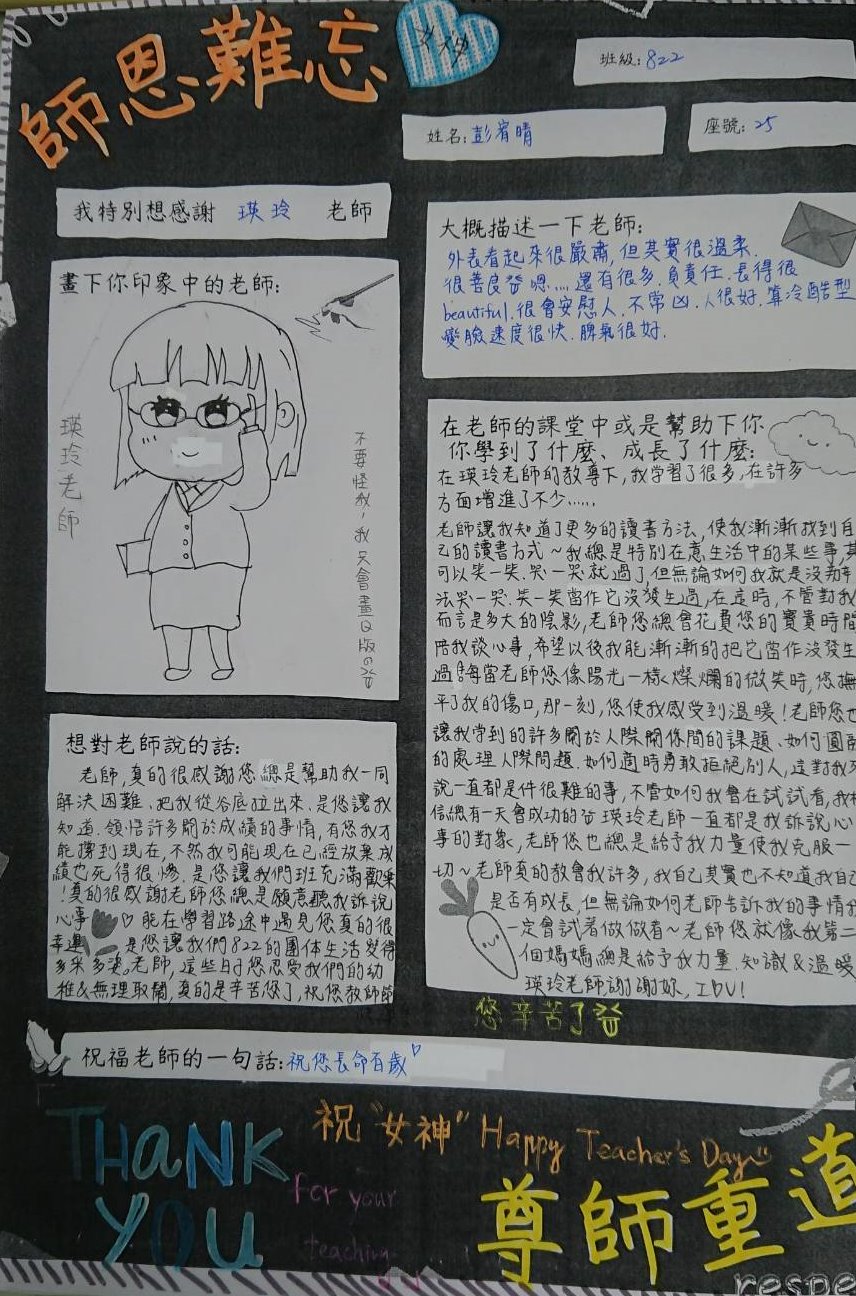 師恩難忘
女神
班級:822
姓名:彭宥晴
座號:25
我特別想感謝 瑛玲 老師
畫下你印象中的老師:
瑛玲老師
不要怪我,我只會畫Q版的
大概描述一下老師:
外表看起來很嚴肅,但其實很溫柔.
很善良 嗯....還有很多.負責任.長得很
beautiful.很會安慰人.不常凶.人很好.算冷酷型
變臉速度很快.脾氣很好.
在老師的課堂中或是幫助下你
你學到了什麼、成長了什麼:
在瑛玲老師的教導下,我學習了很多,在許多
方面增進了不少......
老師讓我知道了更多的讀書方法,使我漸漸找到自
己的讀書方式~我總是特別在意生活中的某些事,其
可以笑一笑.哭一哭就過了,但無論如何我就是沒辦
法哭一哭.笑一笑當作它沒發生過,在這時,不管對我
而言是多大的陰影,老師您總會花費您的寶貴時間
陪我談心事,希望以後我能漸漸的把它當作沒發生
過 每當老師您像陽光一樣燦爛的微笑時,您撫
平了我的傷口,那一刻,您使我感受到溫暖!老師您也
讓我學到的許多關於人際關係間的課題、如何圓
的處理人際問題.如何適時勇敢拒絕別人,這對我
說一直都是件很難的事,不管如何我會在試試看,我
信總有一天會成功的 瑛玲老師一直都是我訴說心
事的對象,老師您也總是給予我力量使我克服一
切~老師真的教會我許多,我自己其實也不知道我自己
是否有成長,但無論如何老師告訴我的事情我
一定會試著做做看~老師您就像我第二
個媽媽總是給予我力量.知識&溫暖
瑛玲老師,謝謝妳,I LOV U!
您辛苦了
想對老師說的話:
老師,真的很感謝您總是幫助我一同
解決困難、把我從谷底拉出來、是您讓我
知道.領悟許多關於成績的事情,有您我才
能撐到現在,不然我可能現在已經放棄成
績也死得很慘.是您讓我們班充滿歡樂
!真的很感謝老師您總是願意聽我訴說
心事 ♡能在學習路途中遇見您真的很
幸運 是您讓我們822的團体生活變得
多采多姿,老師,這些日子您忍受我們的幼
稚&無理取鬧,真的是辛苦您了,祝您教師節
祝福老師的一句話:祝您長命百歲♡
THANK
YOU
For your
teaching
祝"女神" Happy Teacher's Day
尊師重道
respe